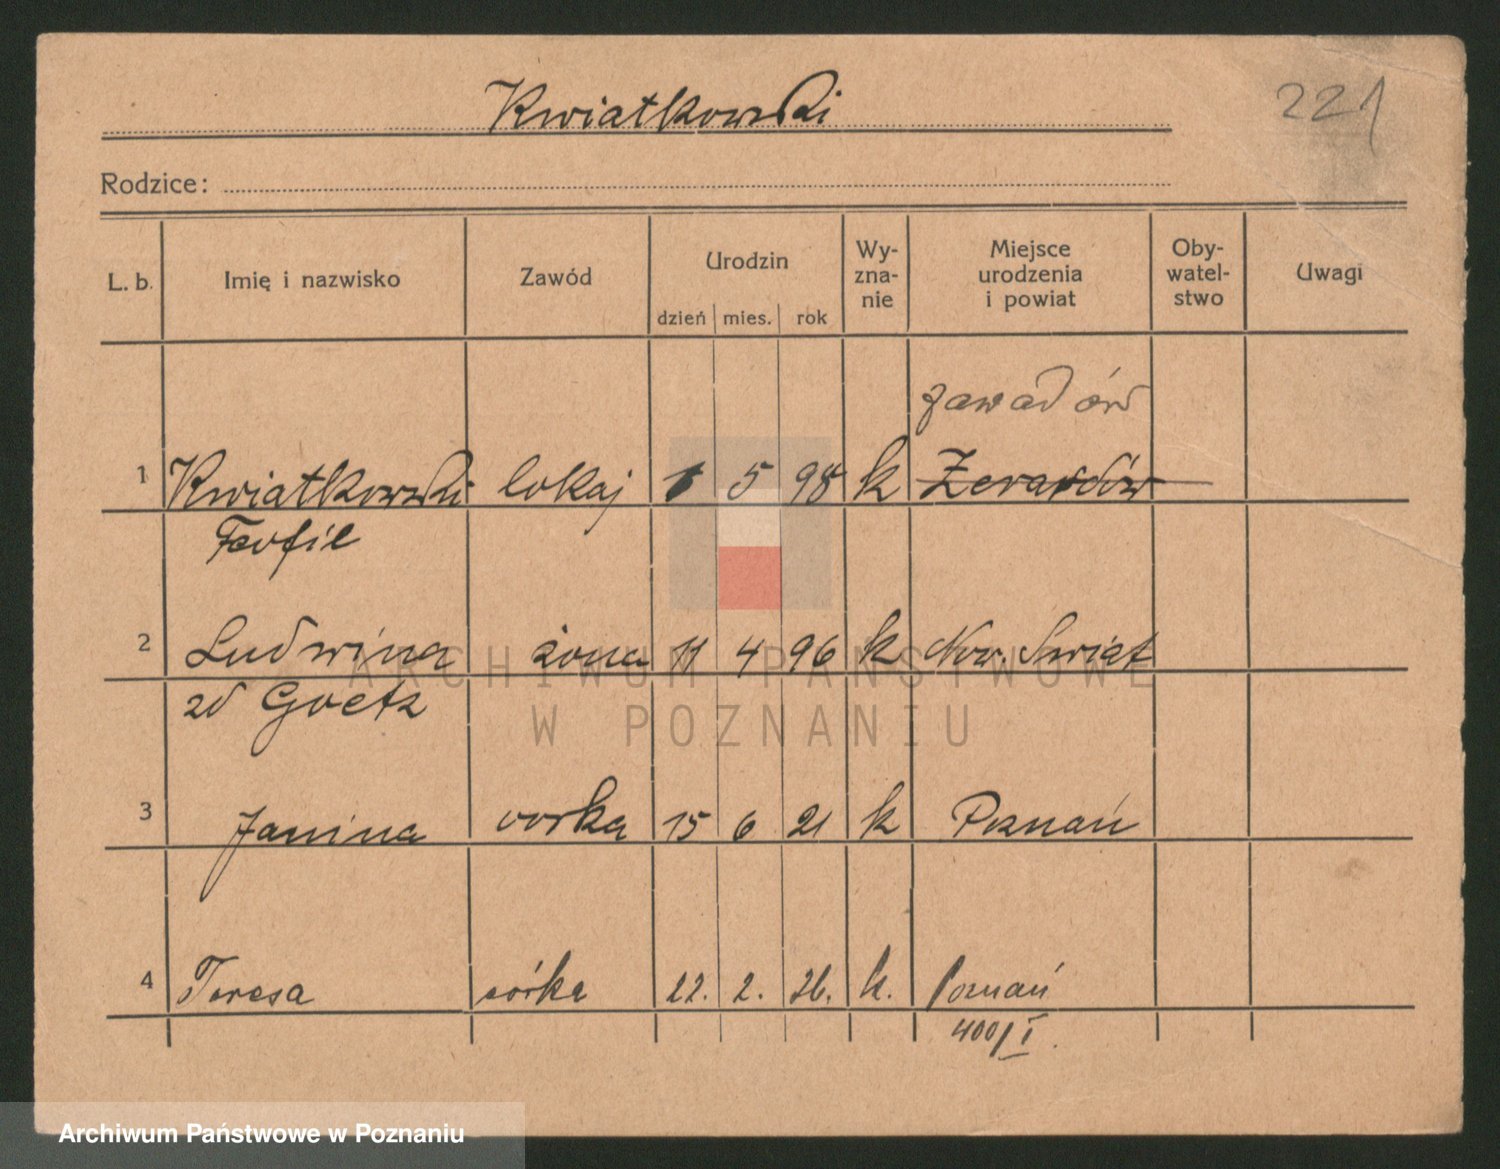 Kwiatkowski
221
Rodzice:
L. b. Imię i nazwisko Zawód Urodzin dzień mies. rok Wy-zna-nie Miejsce urodzenia i powiat Oby-watel-stwo Uwagi
Zawadów
1 Kwiatkowski lokaj 1 5 98 k
Teofil
2 Ludwina żona 11 4 96 k Now. Świat
zd Goetz
3 Janina córka 15 6 21 k Poznań
4 Teresa córka 22. 2. 26. k. Poznań
400/I
ARCHIWUM PAŃSTWOWE
W POZNANIU
Archiwum Państwowe w Poznaniu